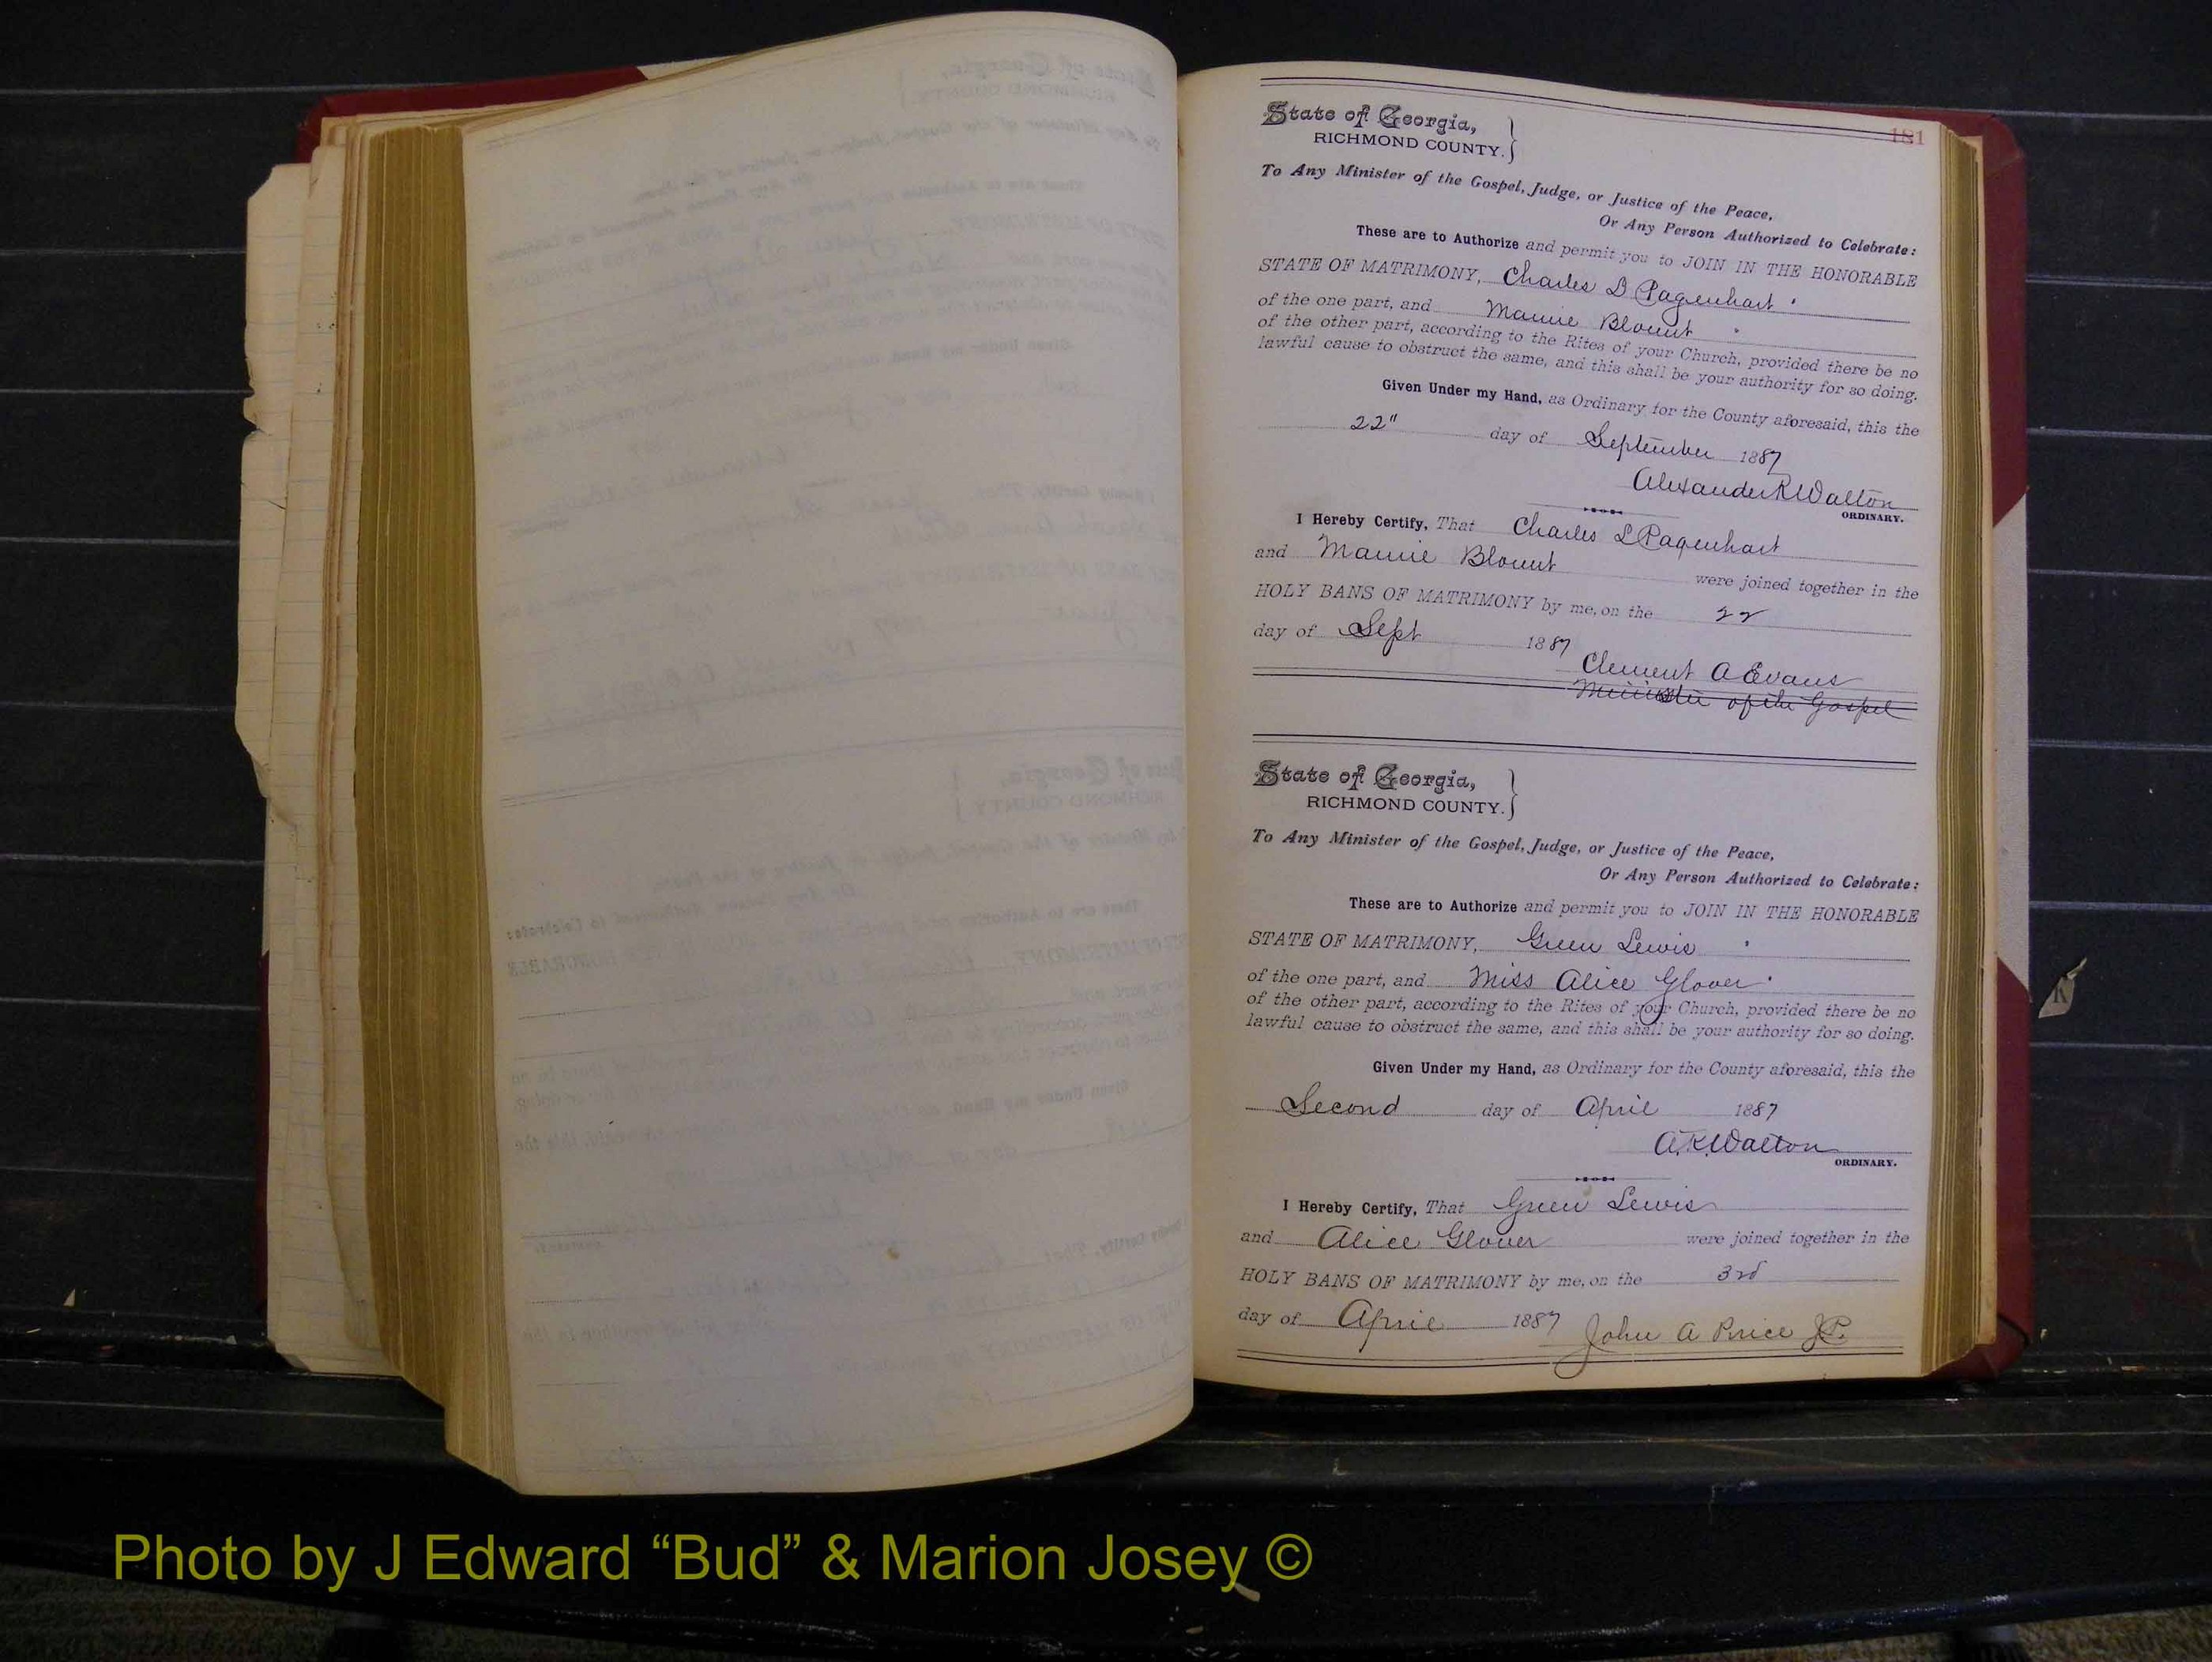 181
State of Georgia,
RICHMOND COUNTY.
To Any Minister of the Gospel, Judge, or Justice of the Peace,
Or Any Person Authorized to Celebrate:
These are to Authorize and permit you to JOIN IN THE HONORABLE
STATE OF MATRIMONY, Charles D Pagenhart
of the one part, and Mamie Blount
of the other part, according to the Rites of your Church, provided there be no
lawful cause to obstruct the same, and this shall be your authority for so doing.
Given Under my Hand, as Ordinary for the County aforesaid, this the
22" day of September 1887
Alexander R Walton
ORDINARY.
I Hereby Certify, That Charles L Pagenhart
and Mamie Blount were joined together in the
HOLY BANS OF MATRIMONY by me, on the 22
day of Sept 1887
Clement A Evans
Minister of the Gospel
State of Georgia,
RICHMOND COUNTY.
To Any Minister of the Gospel, Judge, or Justice of the Peace,
Or Any Person Authorized to Celebrate:
These are to Authorize and permit you to JOIN IN THE HONORABLE
STATE OF MATRIMONY, Green Lewis
of the one part, and Miss Alice Glover
of the other part, according to the Rites of your Church, provided there be no
lawful cause to obstruct the same, and this shall be your authority for so doing.
Given Under my Hand, as Ordinary for the County aforesaid, this the
Second day of April 1887
A.R. Walton
ORDINARY.
I Hereby Certify, That Green Lewis
and Alice Glover were joined together in the
HOLY BANS OF MATRIMONY by me, on the 3rd
day of April 1887
John A Price J.P.
Photo by J Edward “Bud” & Marion Josey ©